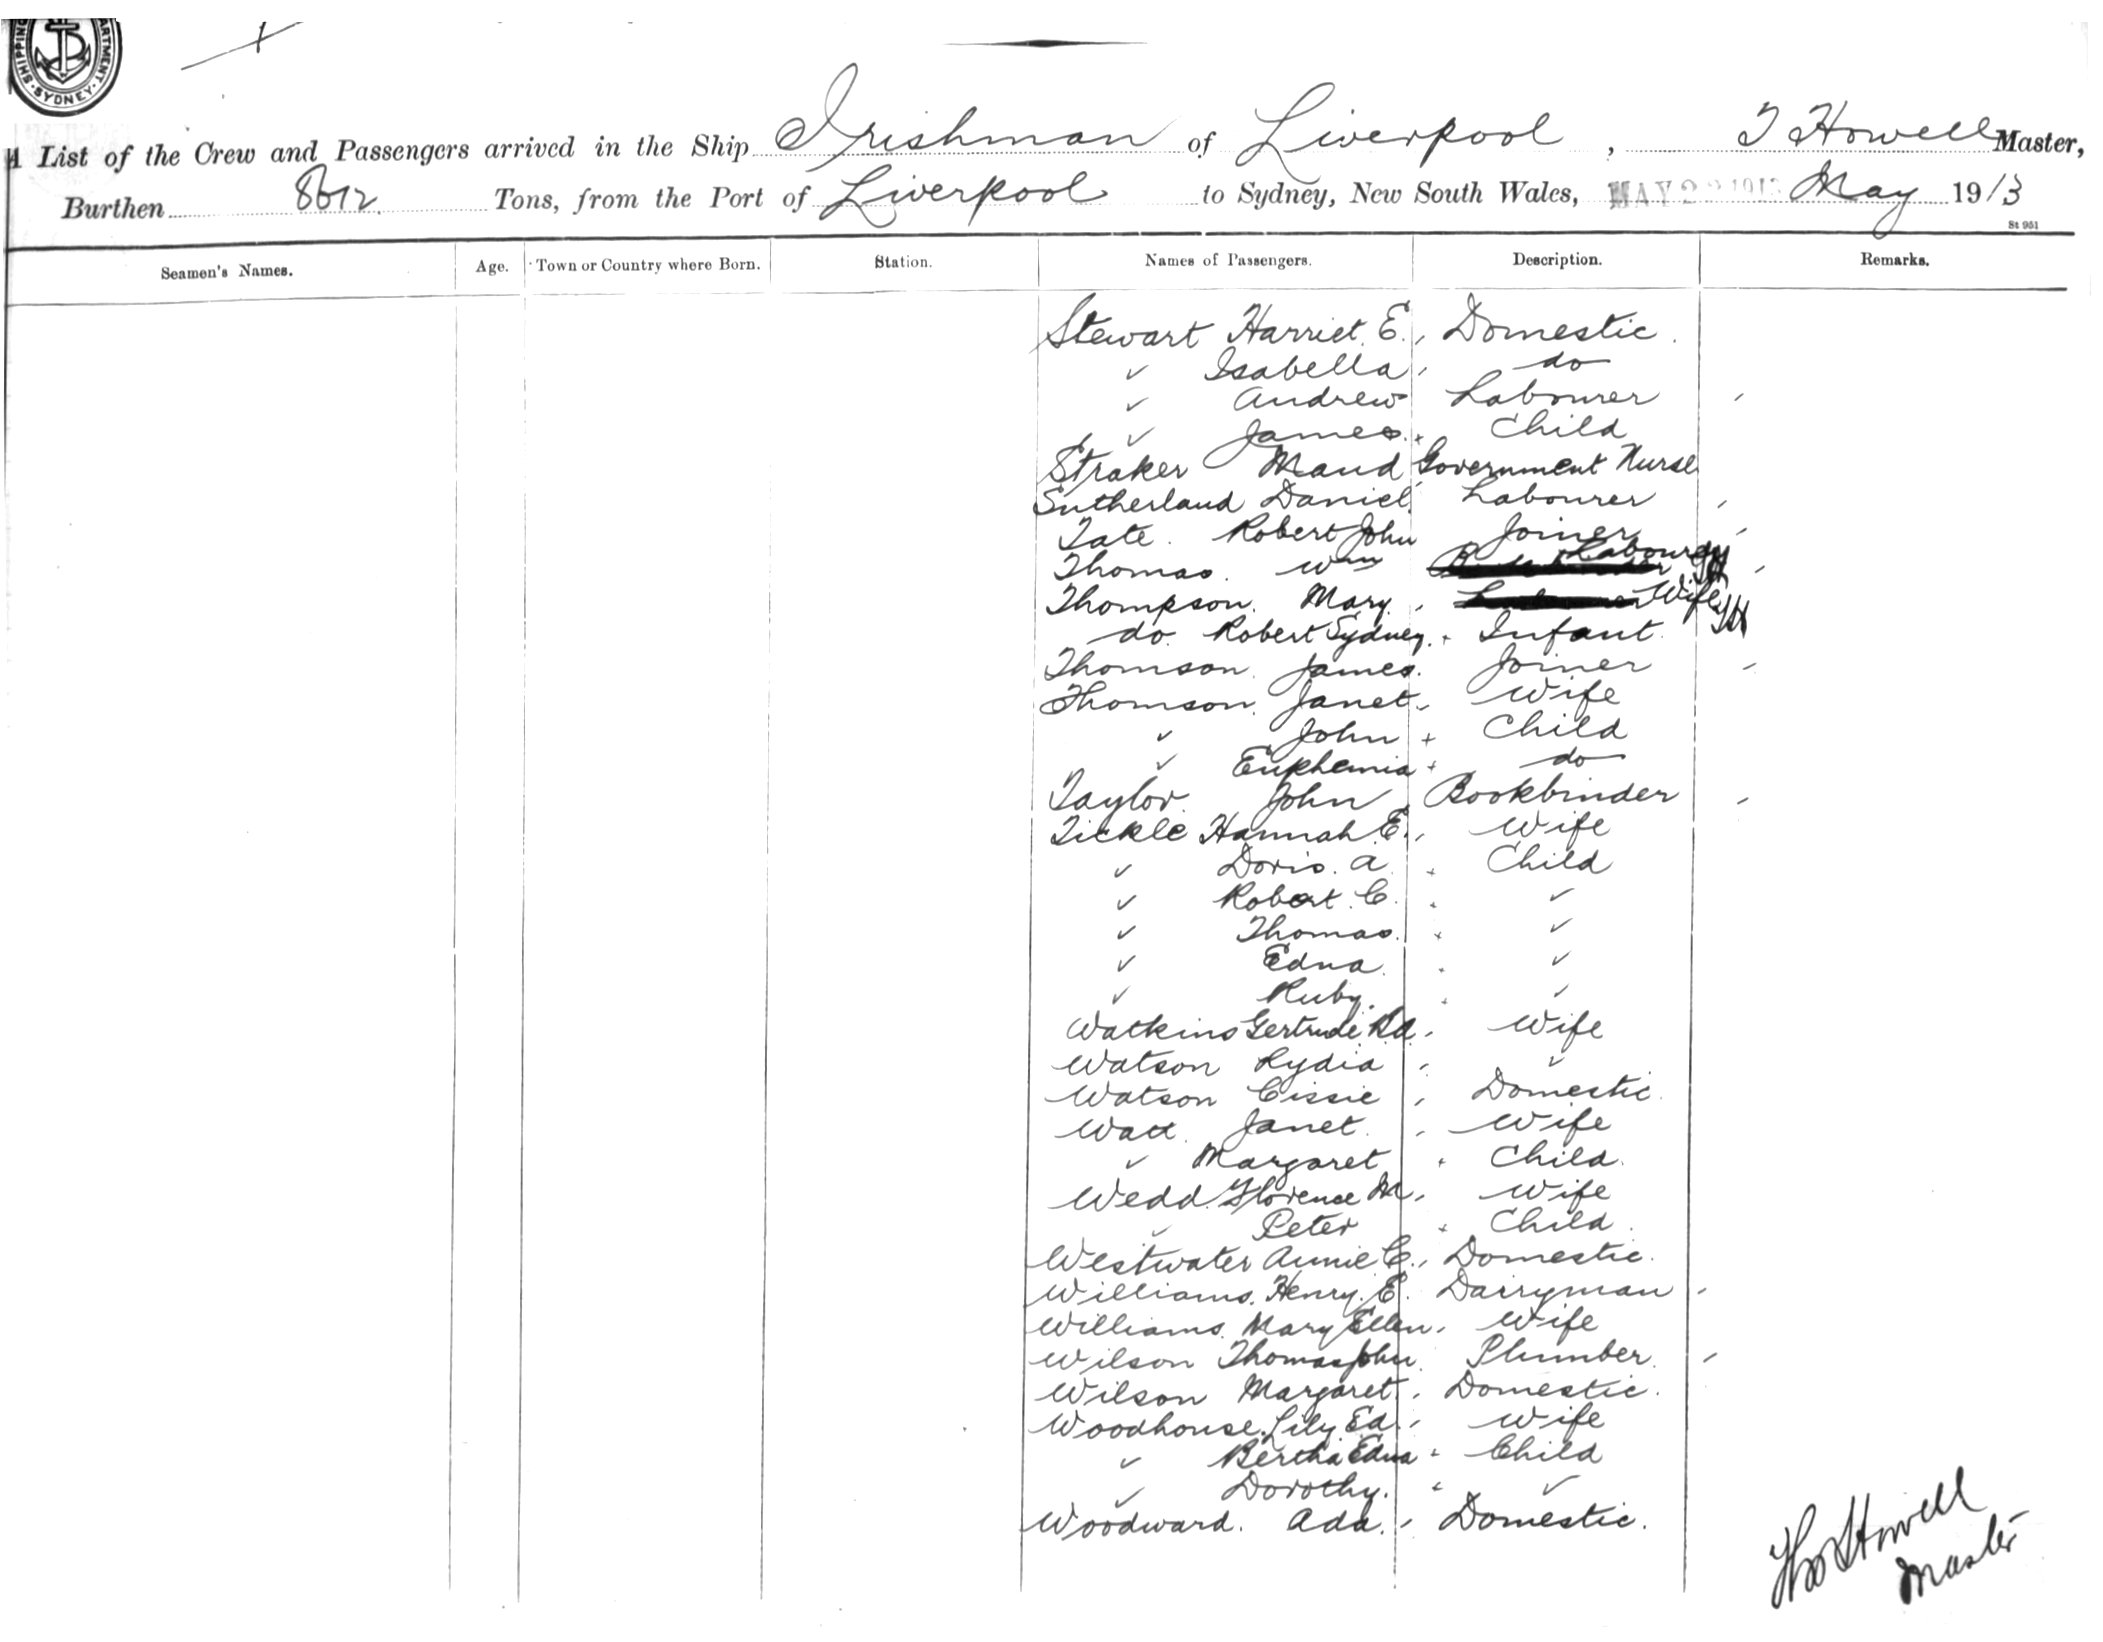 SHIPPING DEPARTMENT. SYDNEY.
A List of the Crew and Passengers arrived in the Ship Irishman of Liverpool, T Howell Master,
Burthen 8612 Tons, from the Port of Liverpool to Sydney, New South Wales, MAY 22 1913 May 1913
St 951
Seamen's Names. Age. Town or Country where Born. Station. Names of Passengers. Description. Remarks.
Stewart Harriet. E. Domestic.
✓ Isabella do
✓ Andrew Labourer
✓ James. Child
Straker Maud Government Nurse
Sutherland Daniel Labourer
Tate. Robert John Joiner
Thomas. Wm Labourer TH
Thompson. Mary. Wife TH
do. Robert Sydney. Infant.
Thomson. James. Joiner
Thomson. Janet. Wife
✓ John Child
✓ Euphemia do
Taylor. John Bookbinder
Tickle Hannah. E. Wife
✓ Doris. A. Child
✓ Robert. C. ✓
✓ Thomas. ✓
✓ Edna. ✓
✓ Ruby. ✓
Watkins Gertrude Wife
Watson Lydia ✓
Watson Cissie Domestic.
Watt. Janet. Wife
✓ Margaret Child.
Wedd. Florence M. Wife
✓ Peter Child.
Westwater Annie C. Domestic.
Williams. Henry. E. Dairyman
Williams. Mary Ellen. Wife
Wilson Thomas John Plumber.
Wilson Margaret. Domestic.
Woodhouse. Lily Ed. Wife
✓ Bertha Edna Child
✓ Dorothy. ✓
Woodward. Ada. Domestic.
Thos Howell
Master